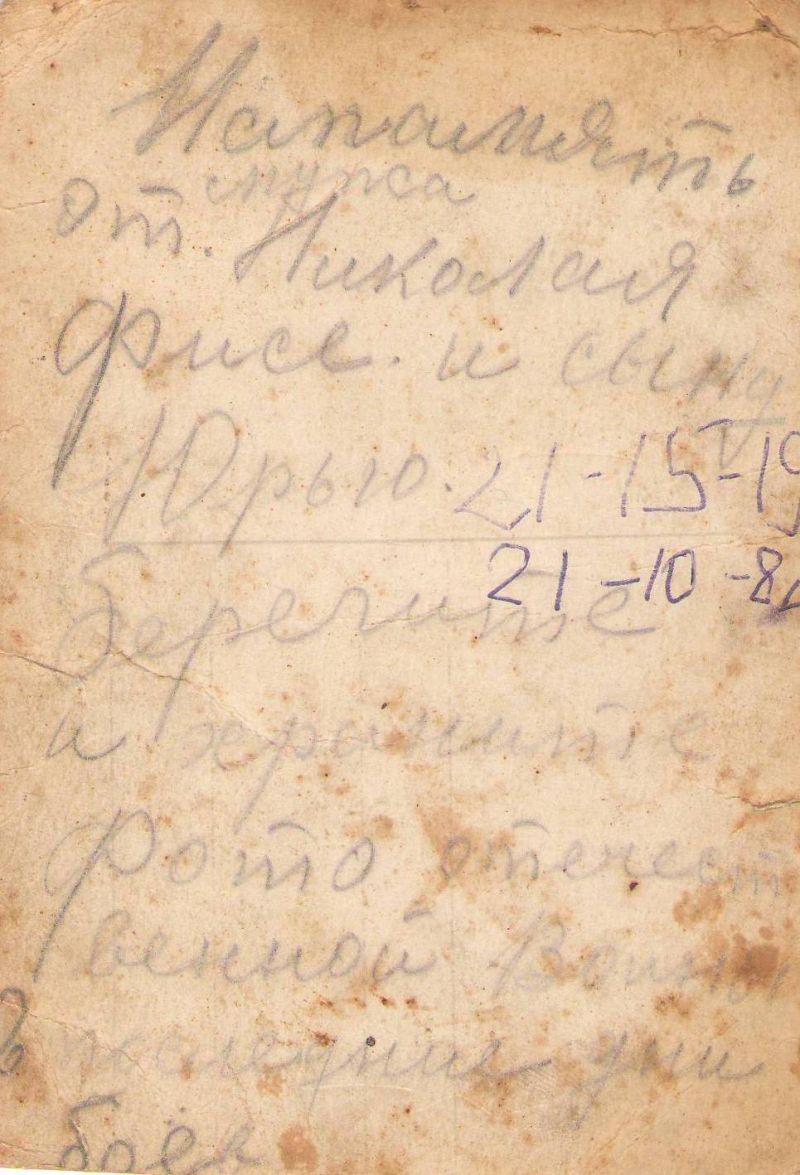 На память
мужа
от. Николая
Фисе. и сыну
Юрью. 21-15-19
21-10-82
Берегите
и храните
Фото отечест
венной Воины
в последние дни
боев